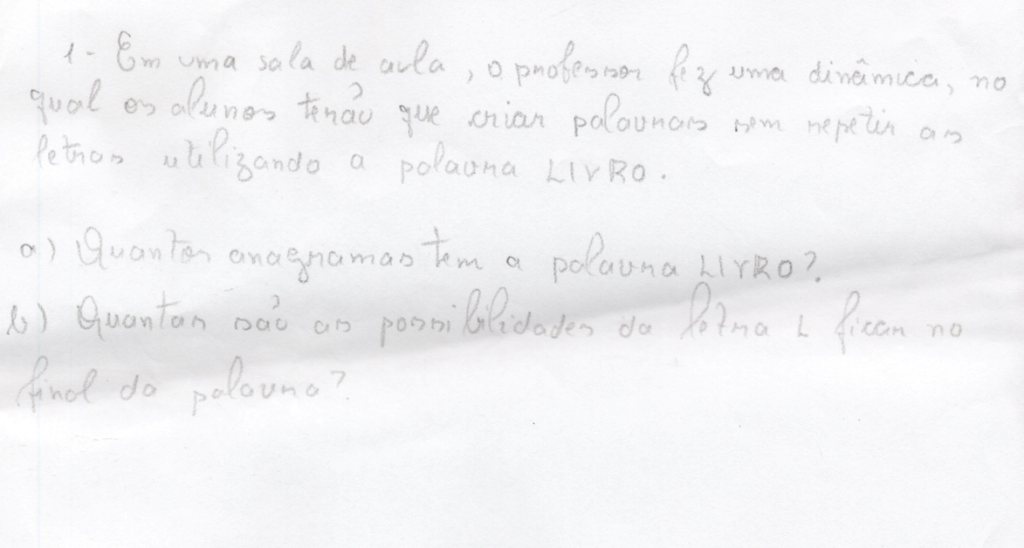 1- Em uma sala de aula, o professor fez uma dinâmica, no
qual os alunos terão que criar palavras sem repetir as
letras utilizando a palavra LIVRO.
a) Quantos anagramas tem a palavra LIVRO?
b) Quantas são as possibilidades da letra L ficar no
final da palavra?